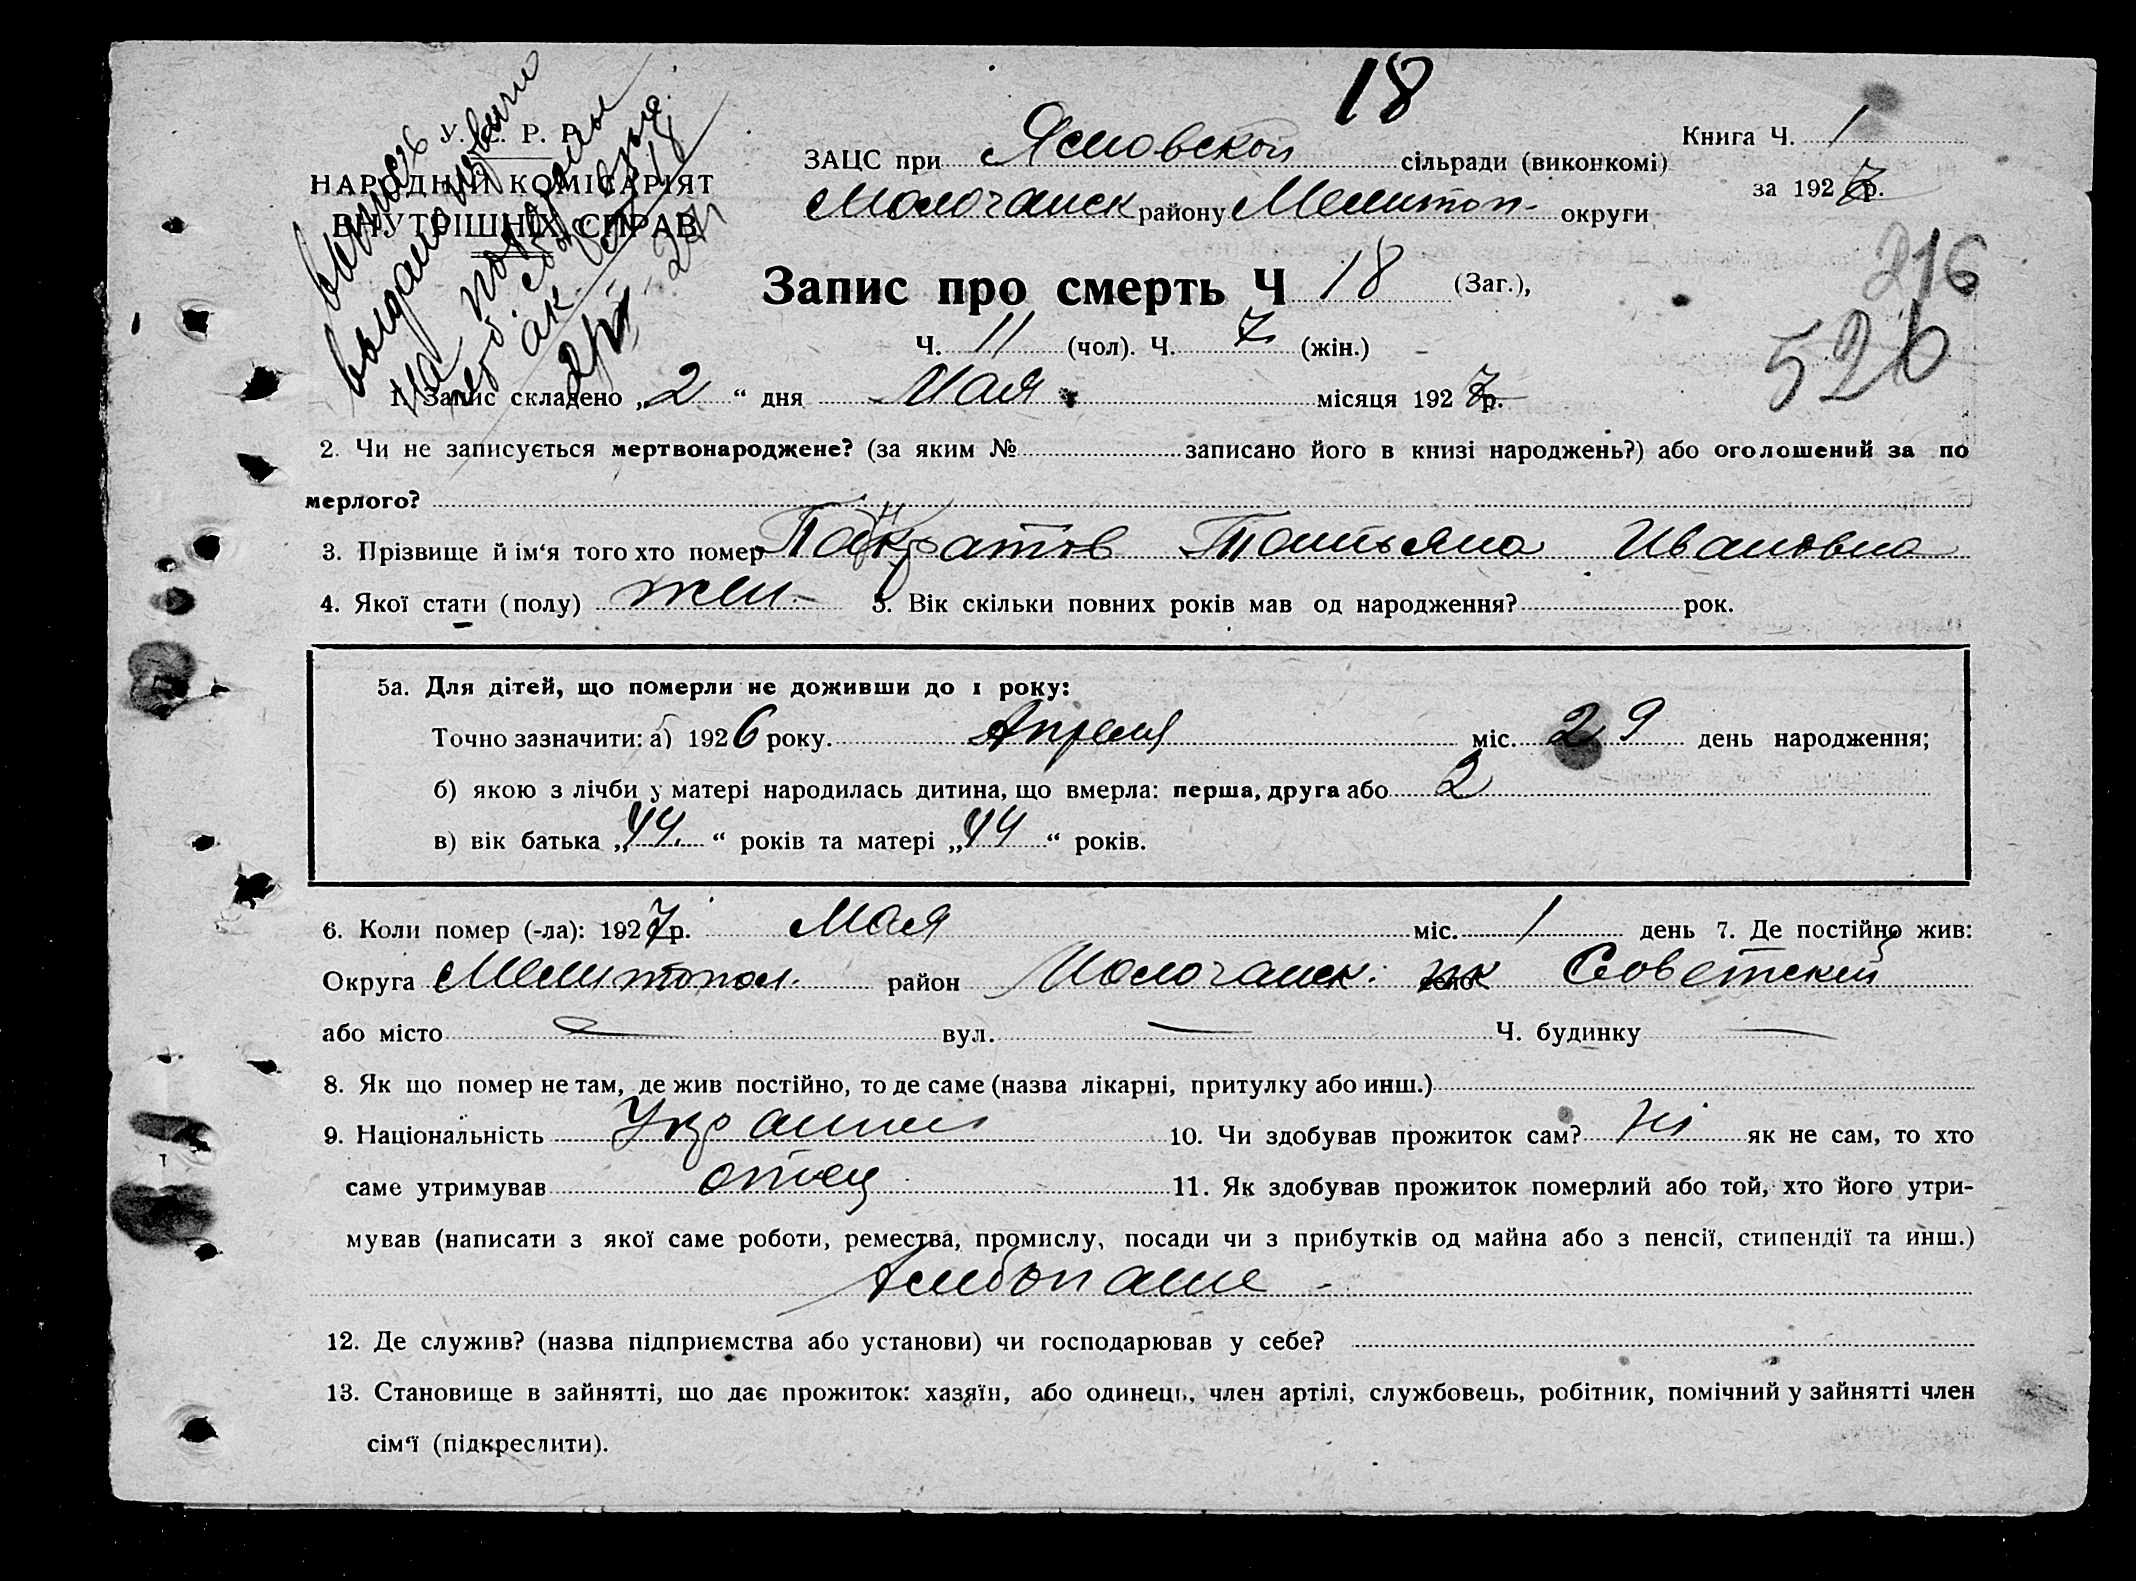 18
У. С. Р. Р.
НАРОДНІЙ КОМІСАРІЯТ
ВНУТРІШНІХ СПРАВ
выпись
выдано
на
ЗАЦС при Ясновской сільради (виконкомі)
Молочанск району Мелитоп- округи
Книга Ч. 1
за 1927 р.
216
526
Запис про смерть Ч 18 (Заг.),
Ч. 11 (чол). Ч. 7 (жін.)
1. Запис складено „ 2 “ дня Мая місяця 1927 р.
2. Чи не записується мертвонароджене? (за яким № записано його в книзі народжень?) або оголошений за по
мерлого?
3. Прізвище й ім‘я того хто помер Панкратов Татьяна Ивановна
4. Якої стати (полу) жен- 5. Вік скільки повних років мав од народження? рок.
5а. Для дітей, що померли не доживши до 1 року:
Точно зазначити: а) 1926 року. Апреля міс. 29 день народження;
б) якою з лічби у матері народилась дитина, що вмерла: перша, друга або 2
в) вік батька „ 44 “ років та матері „ 44 “ років.
6. Коли помер (-ла): 1927 р. Мая міс. 1 день 7. Де постійно жив:
Округа Мелитопол. район Молочанск. село Советский
або місто — вул. — Ч. будинку —
8. Як що помер не там, де жив постійно, то де саме (назва лікарні, притулку або инш.)
9. Національність 10. Чи здобував прожиток сам? Ні як не сам, то хто
саме утримував отец 11. Як здобував прожиток померлий або той, хто його утри-
мував (написати з якої саме роботи, ремества, промислу, посади чи з прибутків од майна або з пенсії, стипендії та инш.)
12. Де служив? (назва підприємства або установи) чи господарював у себе?
13. Становище в зайнятті, що дає прожиток: хазяїн, або одинець, член артілі, службовець, робітник, помічний у зайнятті член
сім‘ї (підкреслити).